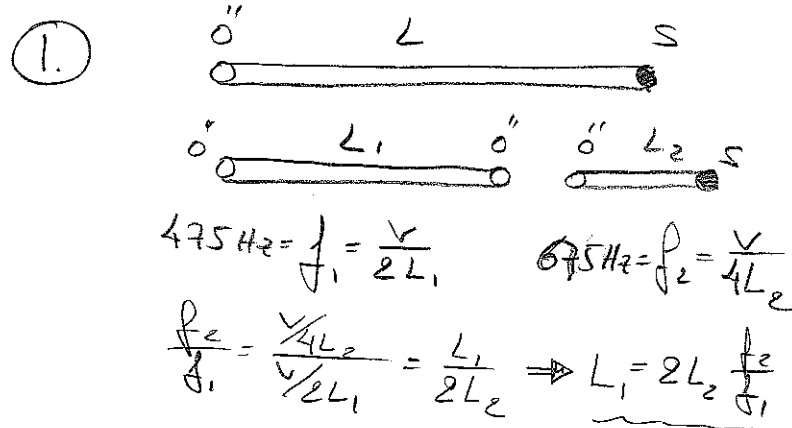 1.
ö L S
ö L₁ ö ö L₂ S
475 Hz = f₁ = v/2L₁ 675 Hz = f₂ = v/4L₂
f₂/f₁ = (v/4L₂)/(v/2L₁) = L₁/2L₂ ⇒ L₁ = 2L₂ f₂/f₁